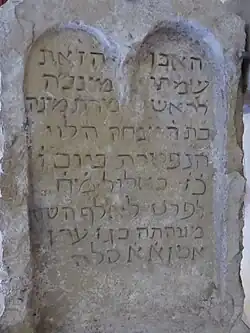 האבן הזאת
שמתי מצבה
לראש מרת
בת ר יצחק הלוי
הנפטרת ביום
באלול
לפרט לאלף הששי
מנוחתה בגן עדן
אמן א א סלה